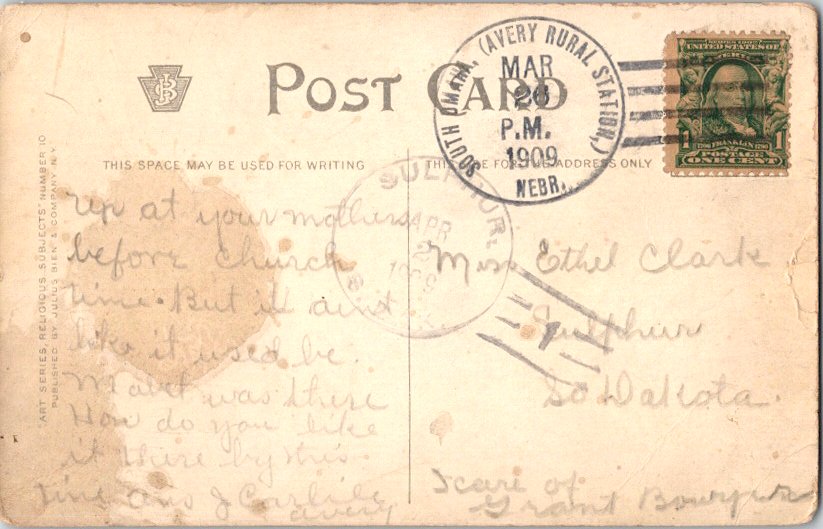 POST CARD
SOUTH OMAHA, (AVERY RURAL STATION,)
MAR
P.M.
1909
NEBR.
UNITED STATES OF
1 FRANKLIN 1
POSTAGE
ONE CENT
THIS SPACE MAY BE USED FOR WRITING
ADDRESS ONLY
"ART SERIES, RELIGIOUS SUBJECTS" NUMBER 10
PUBLISHED BY JULIUS BIEN & COMPANY N.Y.
SULPHUR,
APR
up at your mothers
before church
time. But it aint
like it used be.
Mabel was there
How do you like
it there by this
time ans J Carlile
avery
Miss Ethel Clark
Sulphur
So Dakota.
care of
Grant